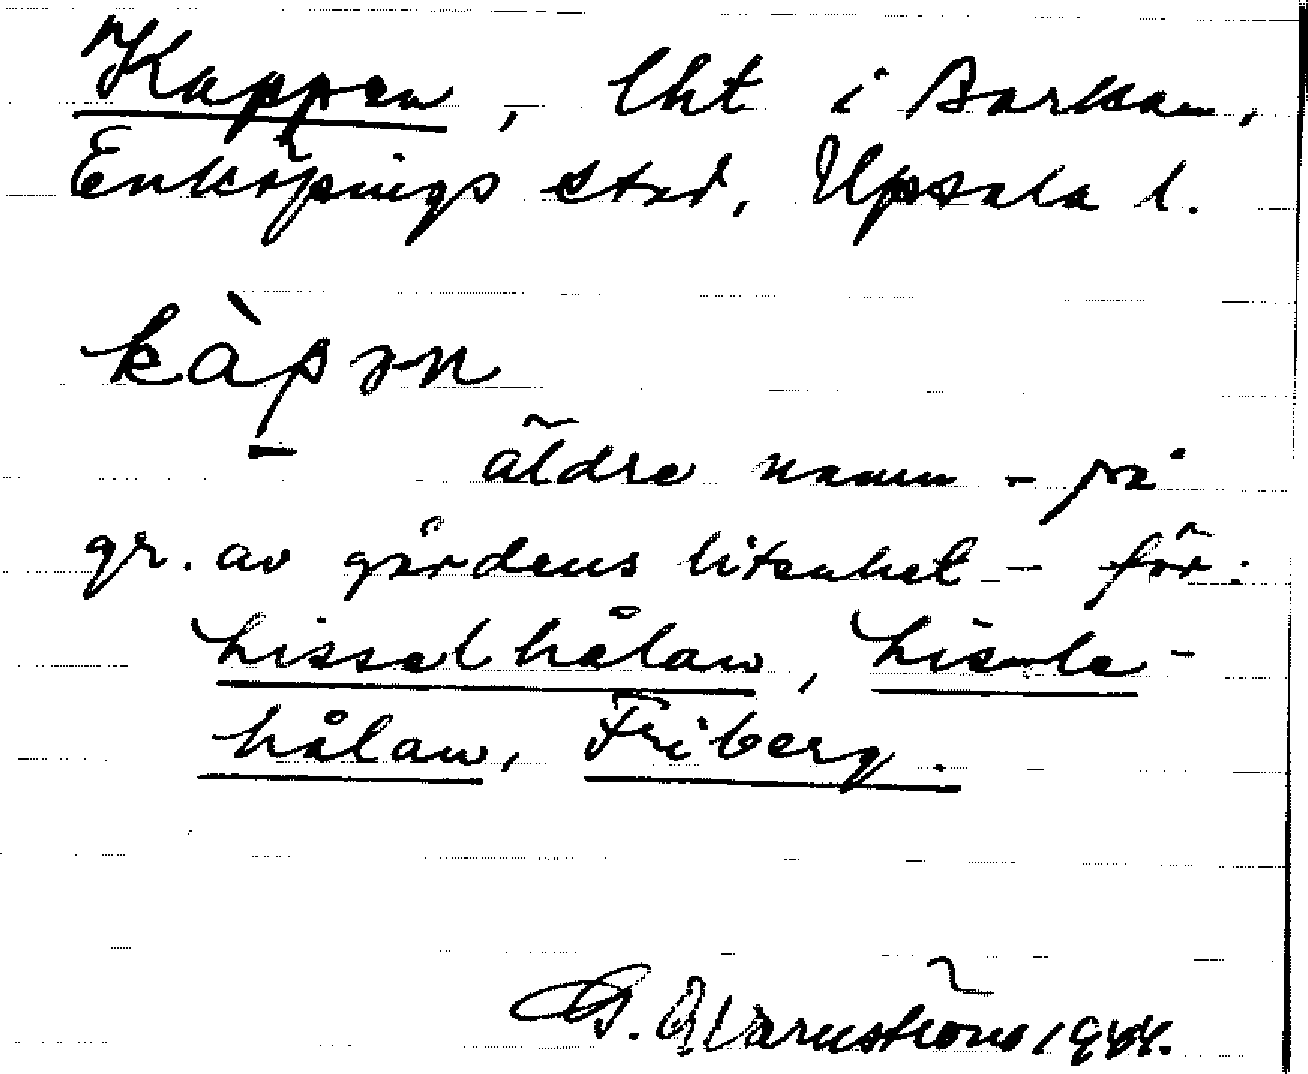 Kappen, lht i Barkan,
Enköpings stad, Upsala l.
kàpən
äldre namn - på
gr. av gårdens litenhet - för:
Lisselhålan, Lisäla-
hålan, Friberg.
G. Qvarnström 1944.